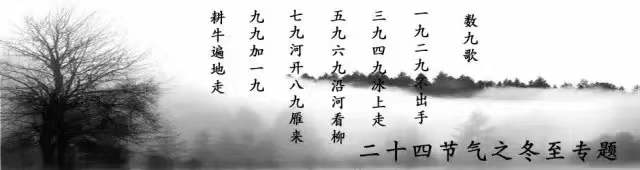 数九歌
一九二九不出手
三九四九冰上走
五九六九沿河看柳
七九河开八九雁来
九九加一九
耕牛遍地走
二十四节气之冬至专题